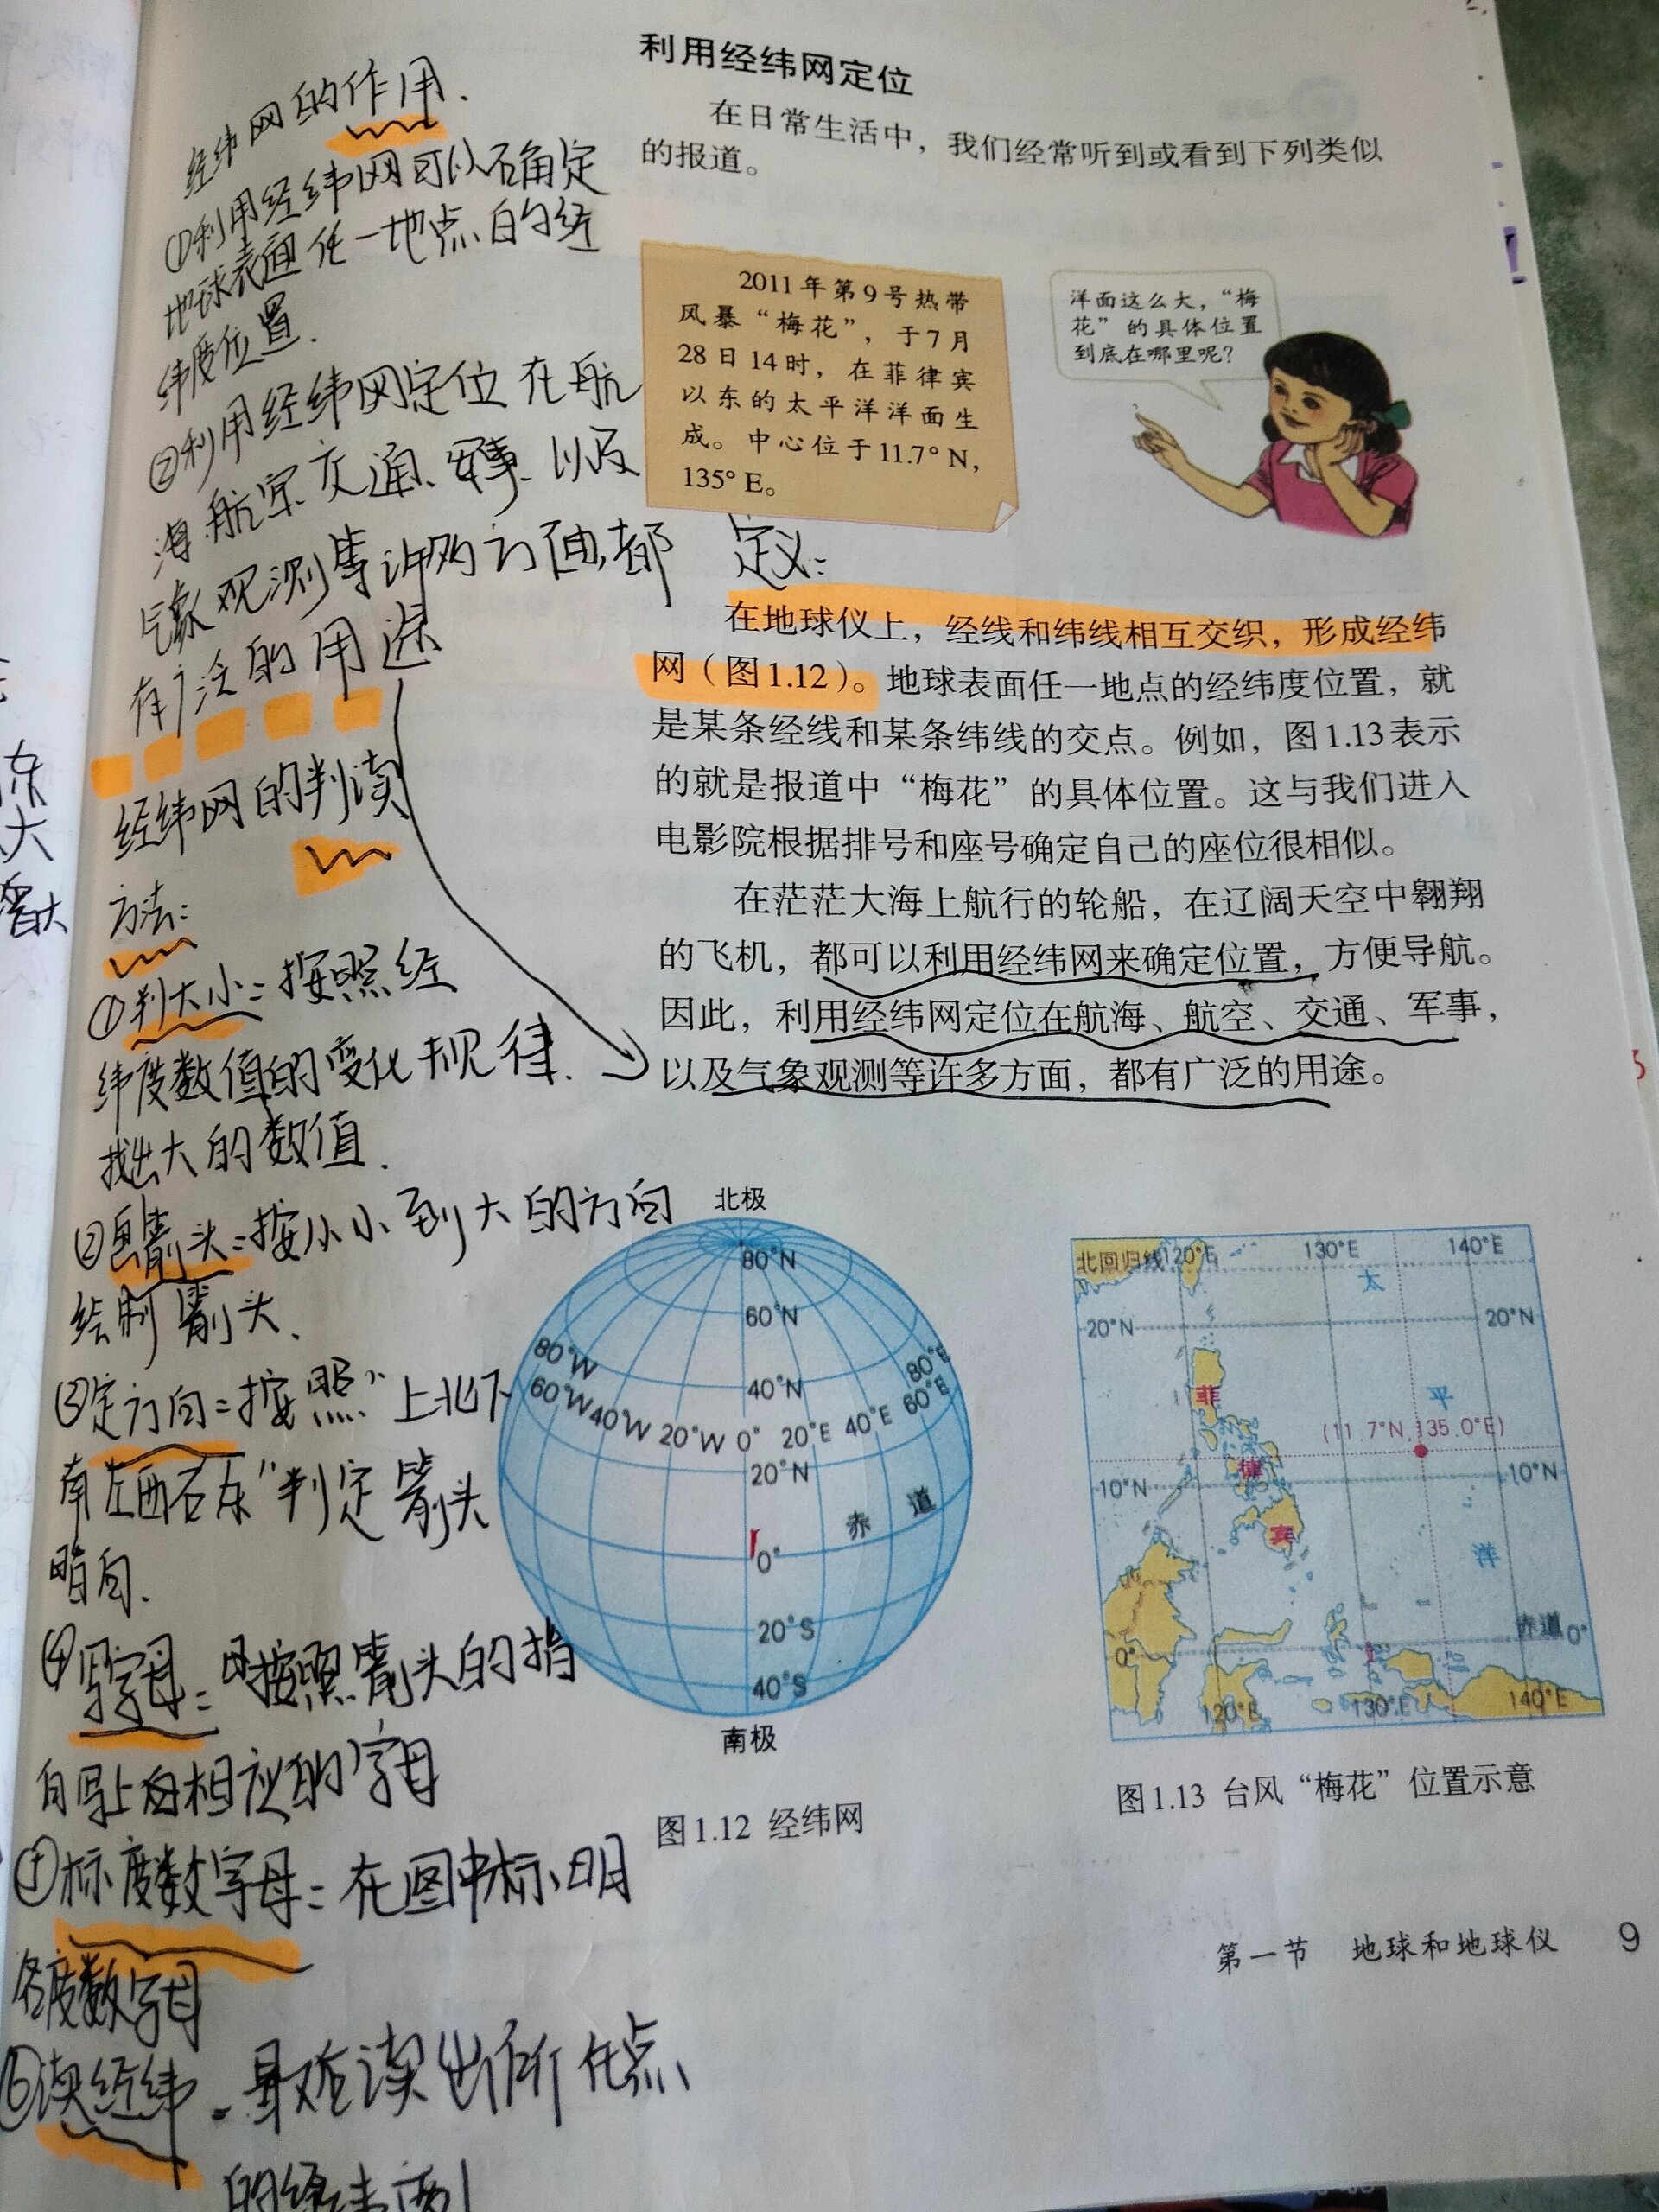 利用经纬网定位
在日常生活中，我们经常听到或看到下列类似
的报道。
2011年第9号热带
风暴“梅花”，于7月
28日14时，在菲律宾
以东的太平洋洋面生
成。中心位于11.7°N，
135°E。
洋面这么大，“梅
花”的具体位置
到底在哪里呢？
定义：
在地球仪上，经线和纬线相互交织，形成经纬
网（图1.12）。地球表面任一地点的经纬度位置，就
是某条经线和某条纬线的交点。例如，图1.13表示
的就是报道中“梅花”的具体位置。这与我们进入
电影院根据排号和座号确定自己的座位很相似。
在茫茫大海上航行的轮船，在辽阔天空中翱翔
的飞机，都可以利用经纬网来确定位置，方便导航。
因此，利用经纬网定位在航海、航空、交通、军事，
以及气象观测等许多方面，都有广泛的用途。
经纬网的作用.
①利用经纬网可以确定
地球表面任一地点的经
纬度位置.
②利用经纬网定位在航
海.航空.交通、军事.以及
气象观测等许多方面,都
有广泛的用途
经纬网的判读
方法：
①判大小：按照经
纬度数值的变化规律.
找出大的数值.
②画箭头：按小小到大的方向
绘制箭头、
③定方向：按照“上北下
南左西右东”判定箭头
指向.
④写字母：按照箭头的指
向写上相应的字母
⑤标度数字母：在图中标明
各度数字母
⑥读经纬：最后读出所在点
北极
80°N
60°N
40°N
80°W 60°W 40°W 20°W 0° 20°E 40°E 60°E 80°E
20°N
赤道
0°
20°S
40°S
南极
图1.12 经纬网
北回归线 120°E 130°E 140°E
太
20°N 20°N
菲 平
(11.7°N,135.0°E)
律
10°N 10°N
宾 洋
赤道 0°
0°
120°E 130°E 140°E
图1.13 台风“梅花”位置示意
第一节 地球和地球仪 9